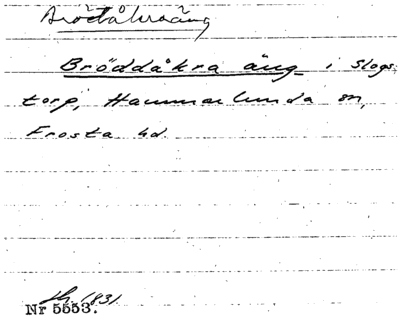 Brödåkraäng
Bröddåkra äng i Slogs
torp, Hammarlunda sn,
Frosta hd.
1831.
Nr 5553.